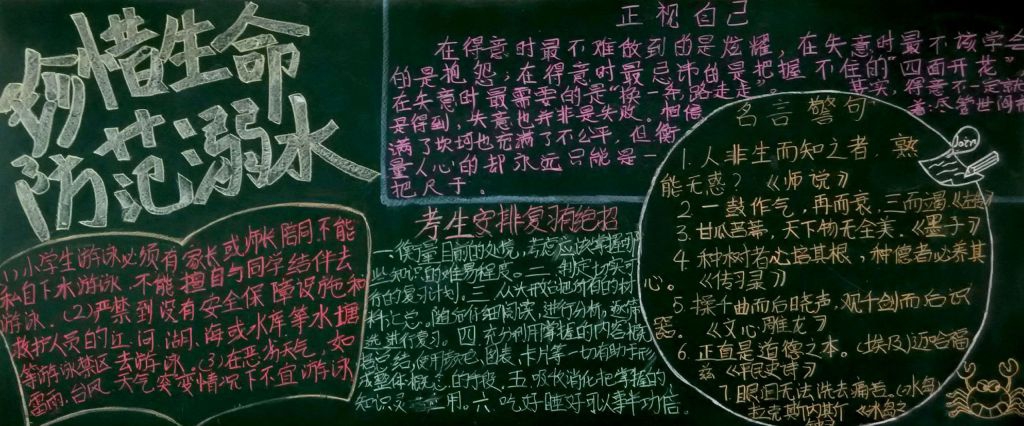 珍惜生命
防范溺水
(1)小学生游泳必须有家长或师长陪同.不能
私自下水游泳.不能擅自与同学结伴去
游泳.(2)严禁到没有安全保障设施和
救护人员的江.河.湖.海或水库等水塘
等游泳禁区去游泳.(3)在恶劣天气,如
雷雨.台风.天气突变情况下不宜游泳
正视自己
在得意时最不难做到的是炫耀,在失意时最不该学会
的是抱怨;在得意时最忌讳的是把握不住的"四面开花",
在失意时最需要的是"换一条路走走"。其实,得意不一定就
是得到,失意也并非是失败。相信
着.尽管世间
满了坎坷也充满了不公平,但衡
量人心的却永远只能是一
把尺子。
考生安排复习有绝招
一.衡量目前的处境,
知识的难易程度。二.制定切实可
行的复习计划。三.从大
进行复习。四.充分利用掌握的内容概
括总结,使用标记.图表.卡片等一切有助于形
成整体概念的手段.五.吸收消化把掌握的
知识灵活应用。六.吃好睡好可以事半功倍。
名言警句
1.人非生而知之者,孰
能无惑?《师说》
2.一鼓作气,再而衰,三而竭
3.甘瓜苦蒂,天下物无全美.《墨子》
4.种树者必培其根,种德者必养其
心。《传习录》
5.操千曲而后晓声,观千剑而后识
器。《文心雕龙》
6.正直是道德之本。(埃及)迈哈福
兹《平民史诗》
7.眼泪无法洗去痛苦。(冰岛)
拉克斯内斯《冰岛之